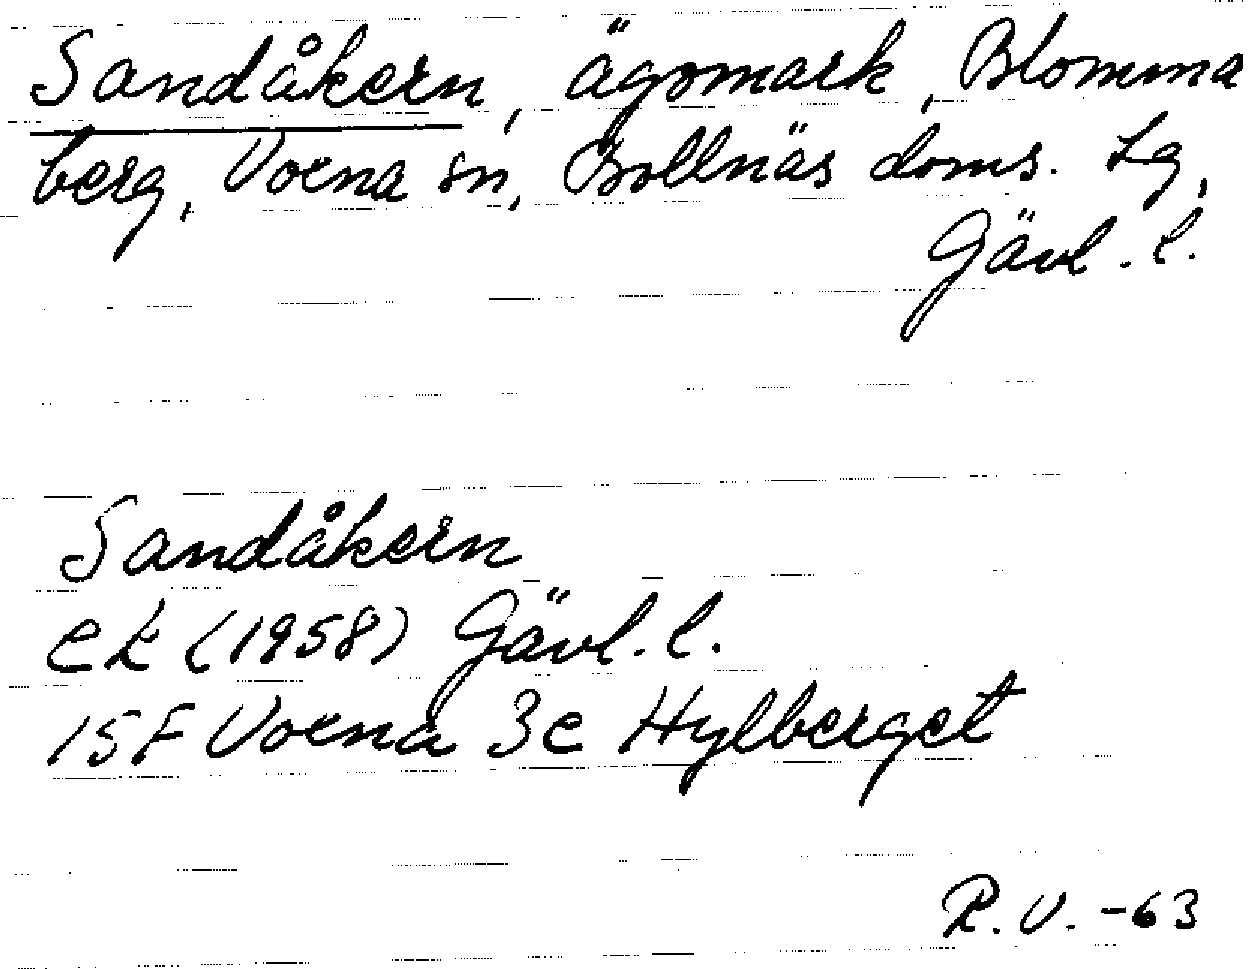 Sandåkern, ägomark, Blomma
berg, Voxna sn, Bollnäs doms. Lg,
Gävl. l.
Sandåkern
ek (1958) Gävl. l.
15F Voxna 3e Hylberget
R.V. -63